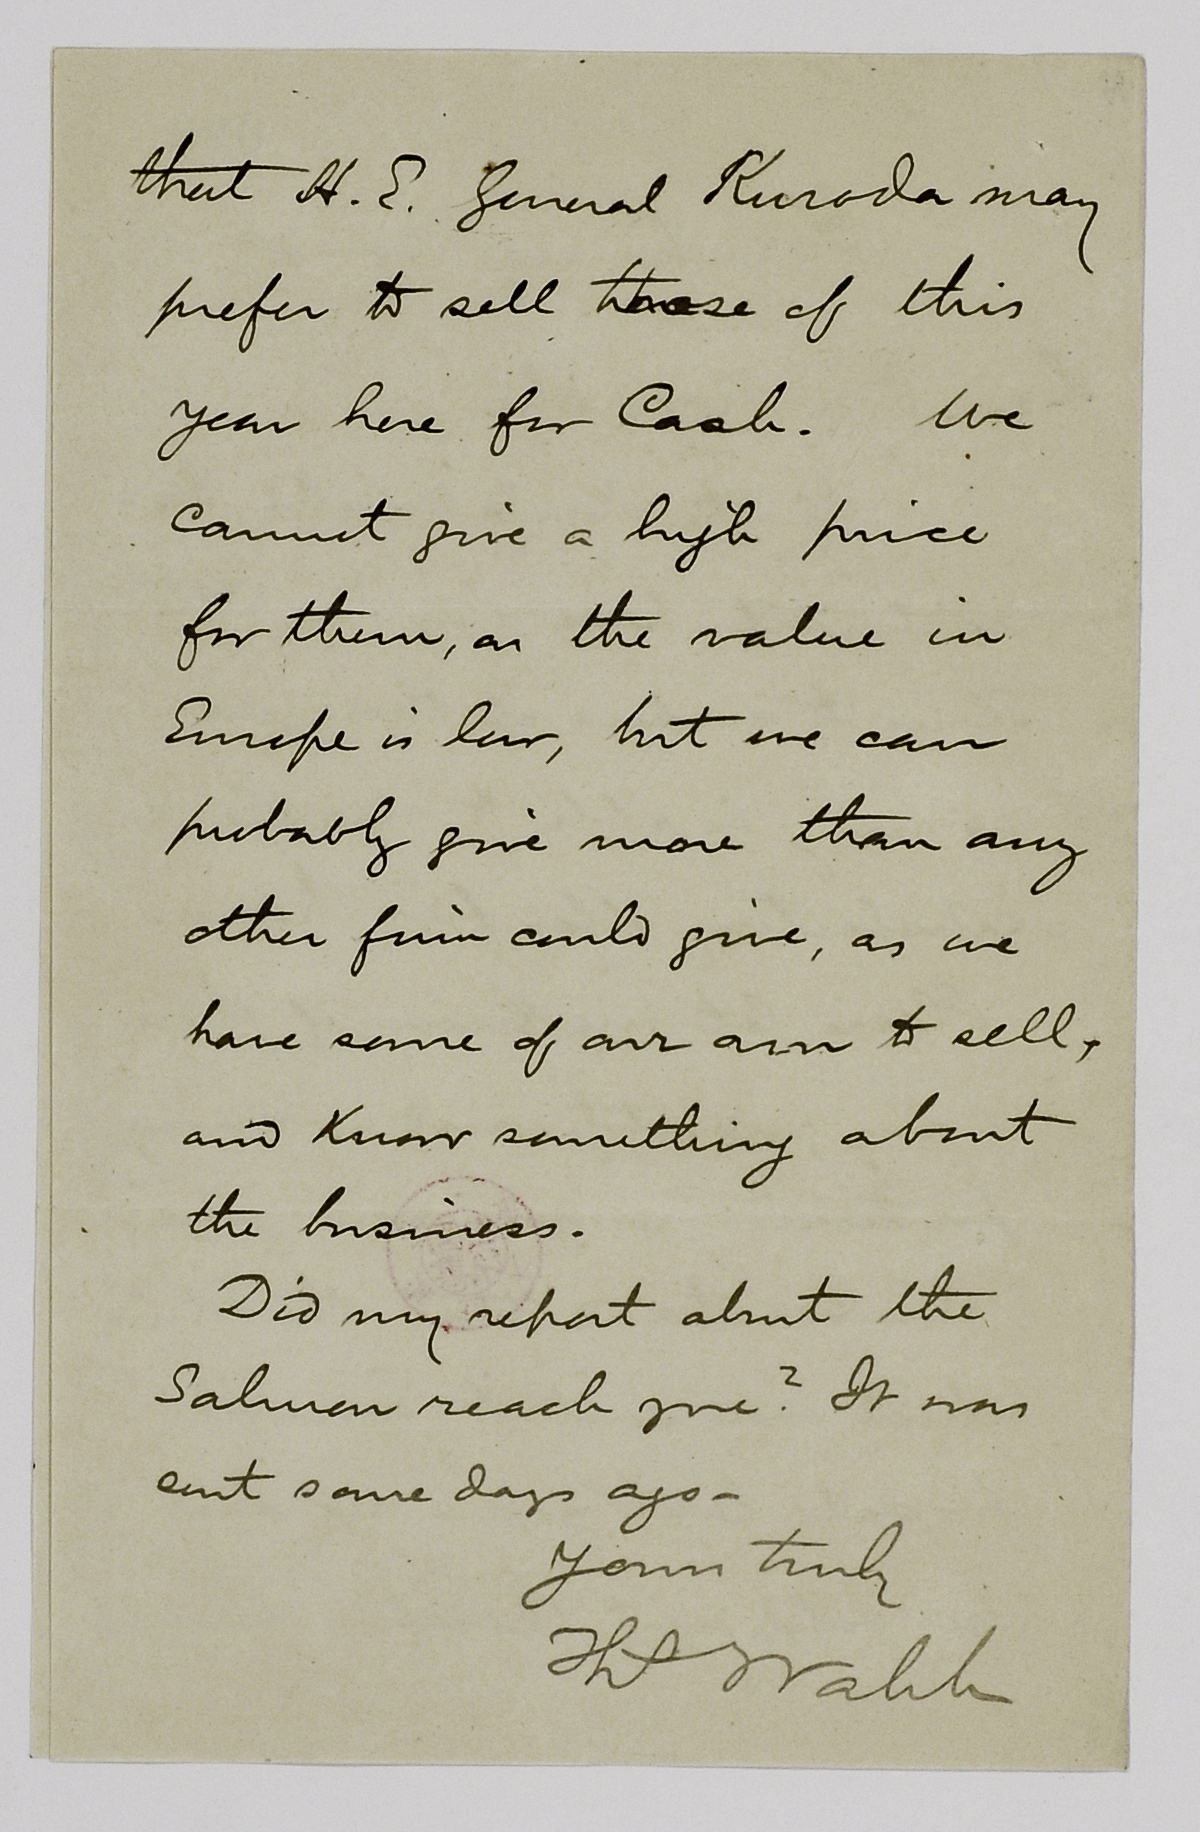 that H. E. General Kuroda may
prefer to sell those of this
year here for Cash. We
cannot give a high price
for them, as the value in
Europe is low, but we can
probably give more than any
other firm could give, as we
have some of our own to sell,
and Know something about
the business.
Did my report about the
Salmon reach you? It was
sent some days ago—
Yours truly
Walsh